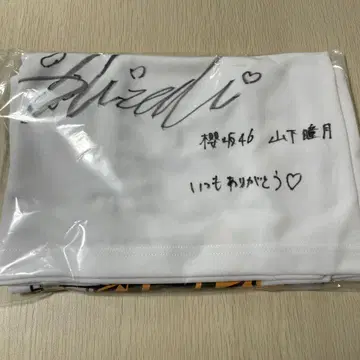 Shizuki♡
櫻坂46 山下瞳月
いつもありがとう♡